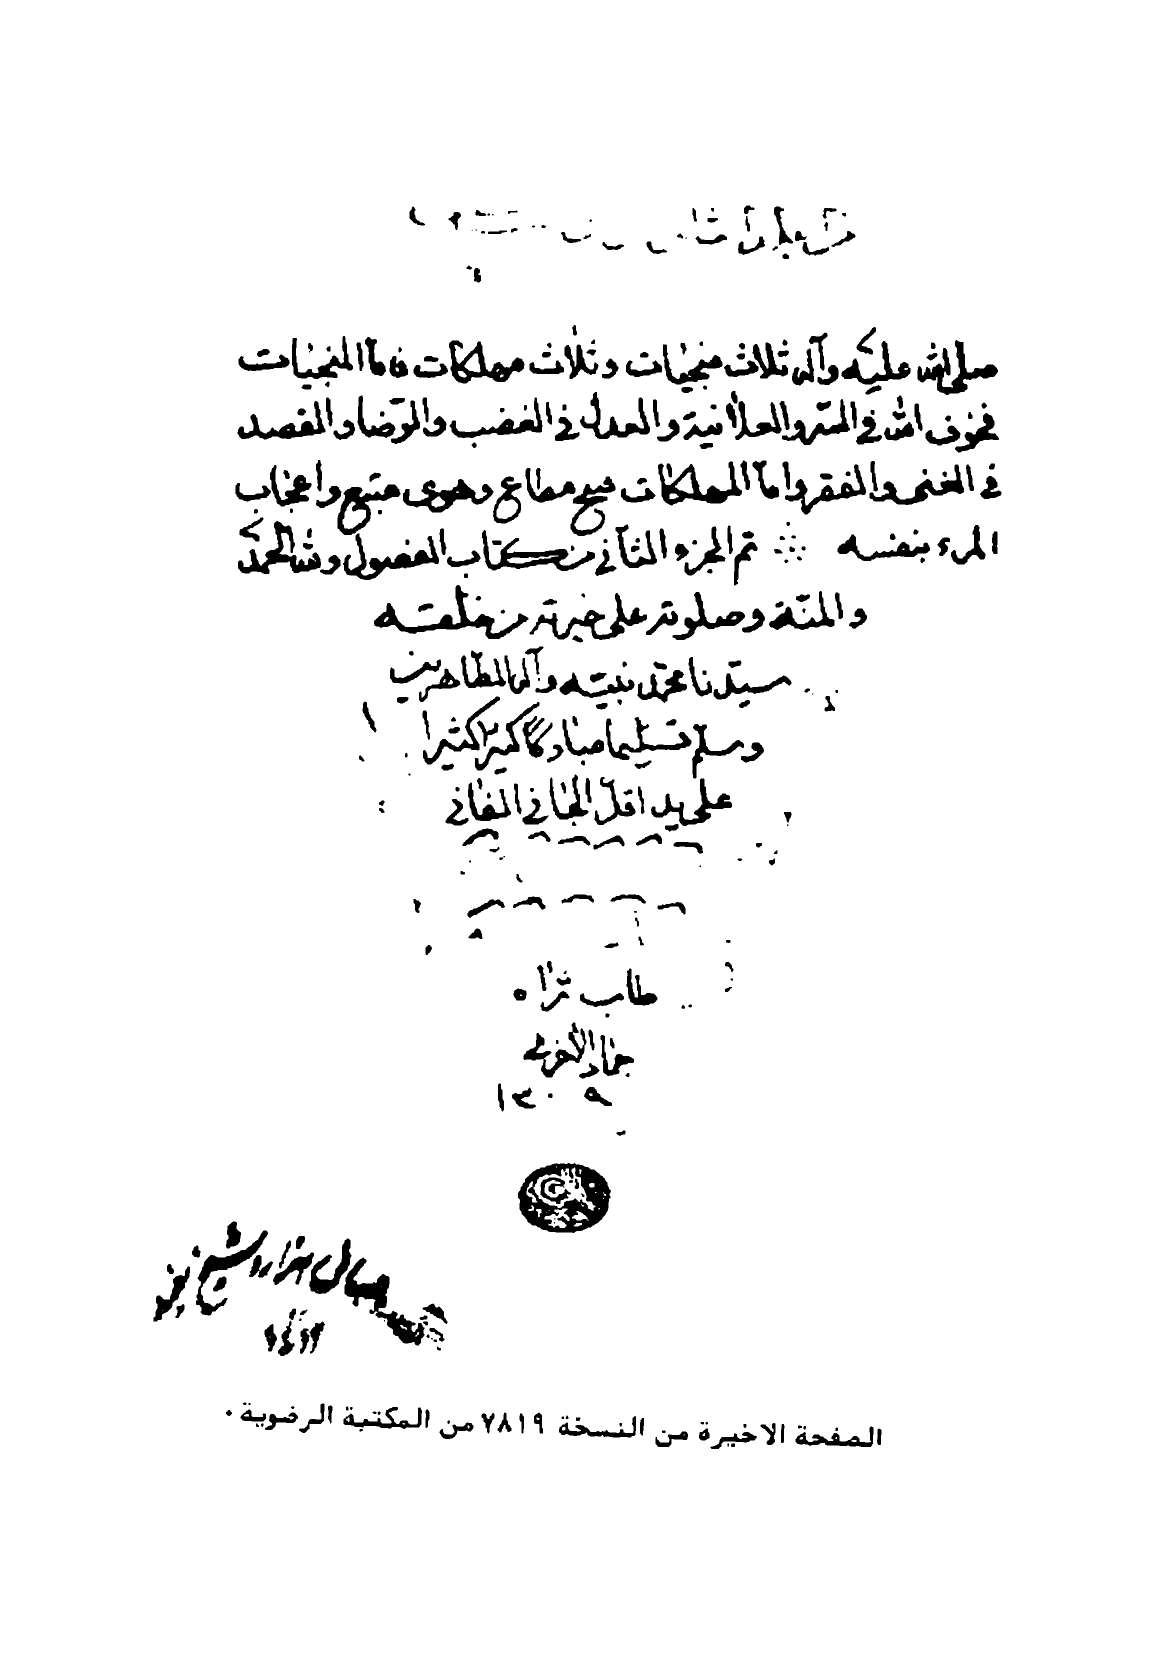 صلى الله عليه وآله ثلاث منجيات وثلاث مهلكات فامّا المنجيات
فخوف الله في السرّ والعلانية والعدل في الغضب والرّضا والقصد
في الغنى والفقر وامّا المهلكات فشح مطاع وهوى متبع واعجاب
المرء بنفسه ∴ تم الجزء الثاني من كتاب الفصول ولله الحمد
والمنّة وصلوته على خيرته من خلقته
سيّدنا محمّد نبيّه وآله الطاهرين
وسلّم تسليما مباركا كثيرا
على يد اقل الجاني الفاني
طاب ثراه
جماد الاخرى
١٣٠٩
الصفحة الاخيرة من النسخة ٧٨١٩ من المكتبة الرضوية .